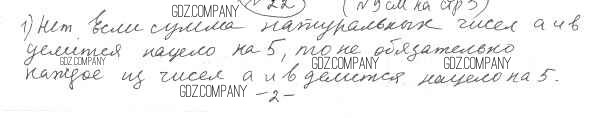 22 (N9 см на стр 5)
1) Нет. Если сумма натуральных чисел а и в
делится нацело на 5, то не обязательно
каждое из чисел а и в делится нацело на 5.
-2-
GDZ.COMPANY
GDZ.COMPANY
GDZ.COMPANY
GDZ.COMPANY
GDZ.COMPANY
GDZ.COMPANY